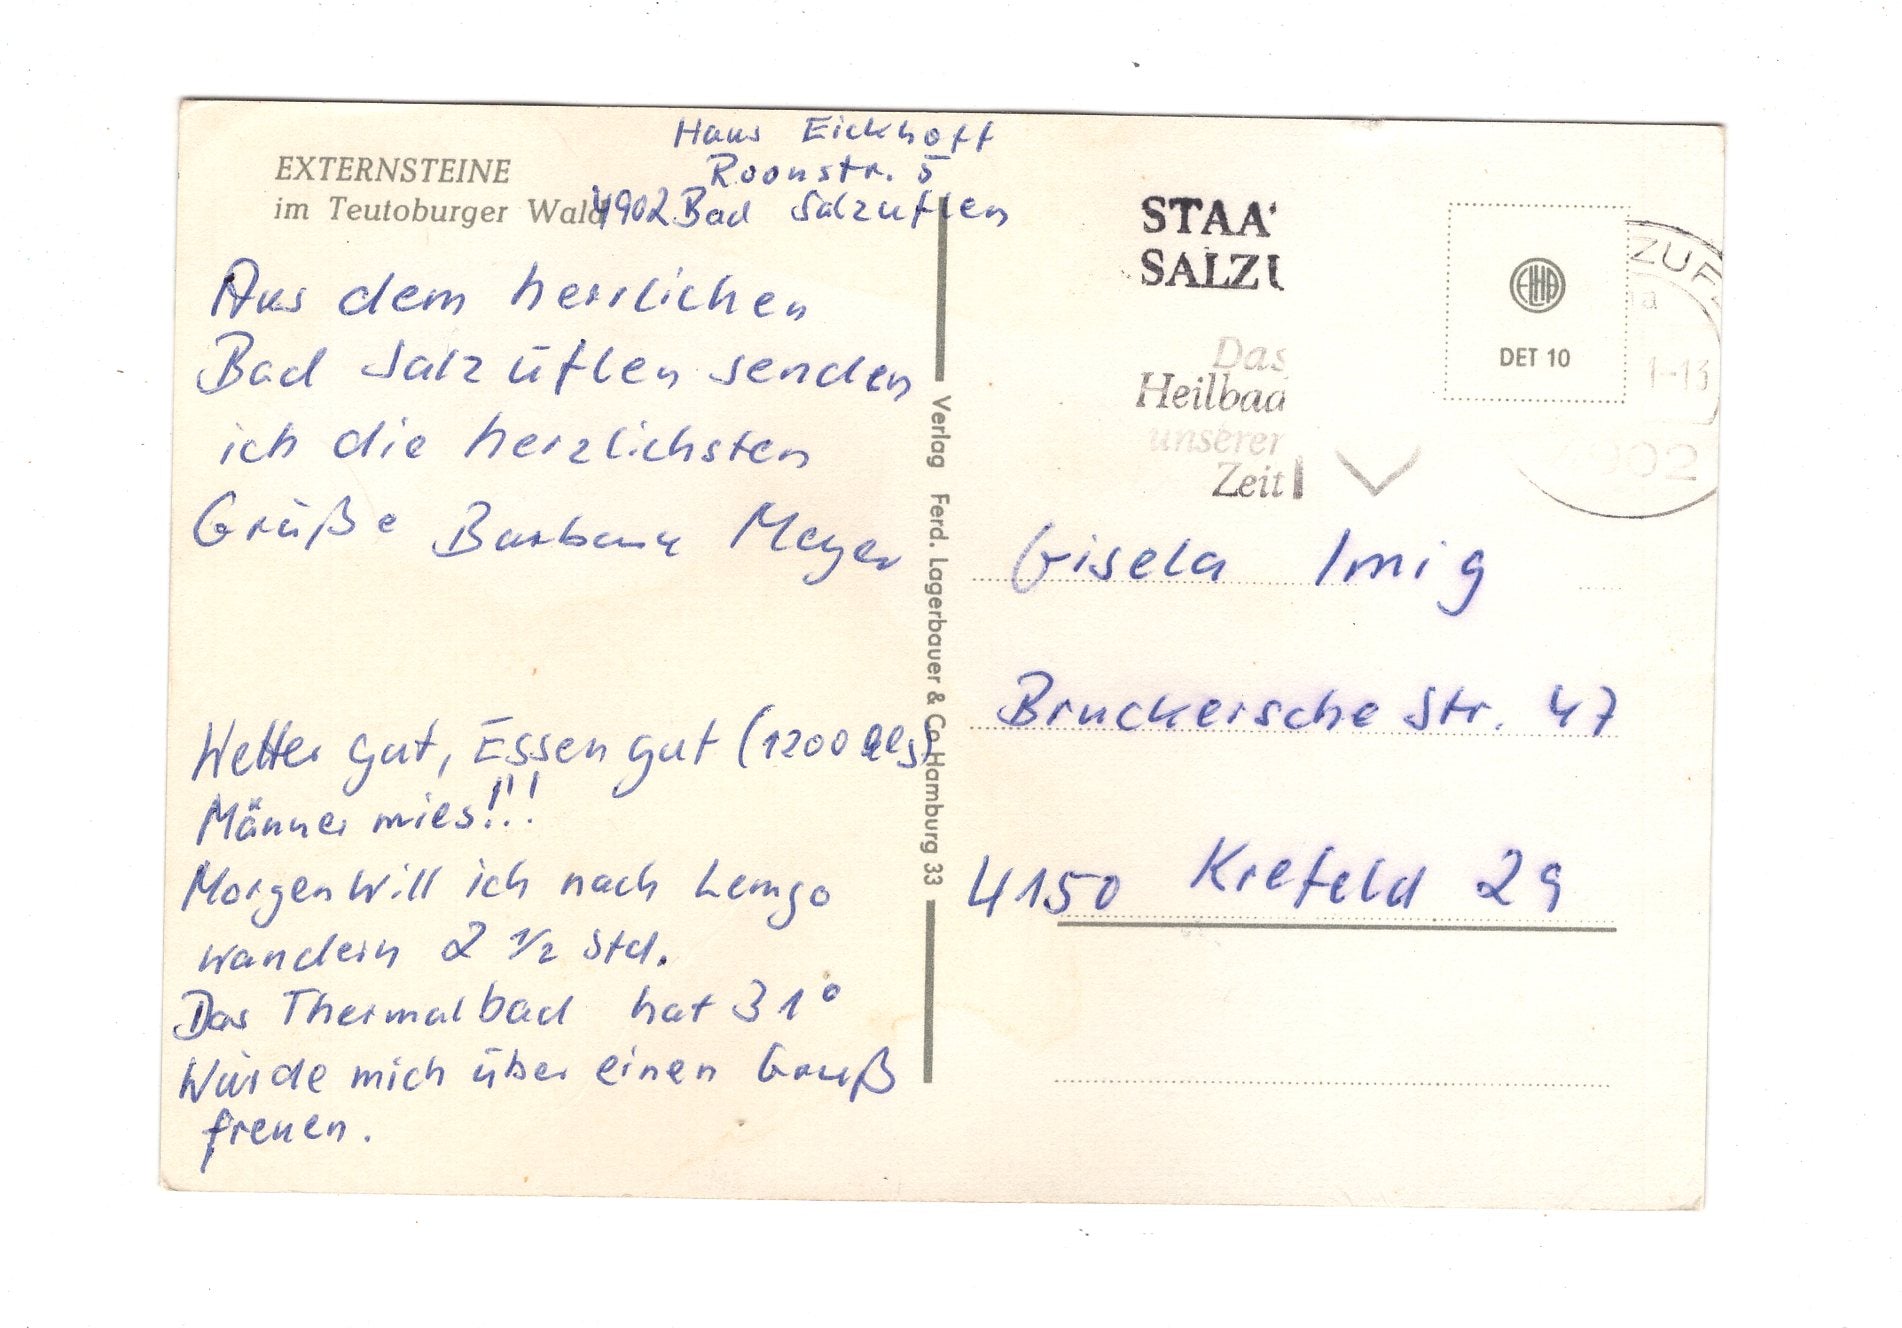 EXTERNSTEINE
im Teutoburger Wald
Haus Eickhoff
Roonstr. 5
4902 Bad Salzuflen
Aus dem herrlichen
Bad Salzuflen senden
ich die herzlichsten
Grüße Barbara Meyer
Wetter gut, Essen gut (1200
Männer mies!!!
Morgen will ich nach Lemgo
wandern 2 1/2 Std.
Das Thermalbad hat 31°
Würde mich über einen Gruß
freuen.
Verlag Ferd. Lagerbauer & Co Hamburg 33
STAA
SALZU
Das
Heilbad
unserer
Zeit
DET 10
ZUFL
a
1-13
4902
Gisela Imig
Bruckersche Str. 47
4150 Krefeld 29